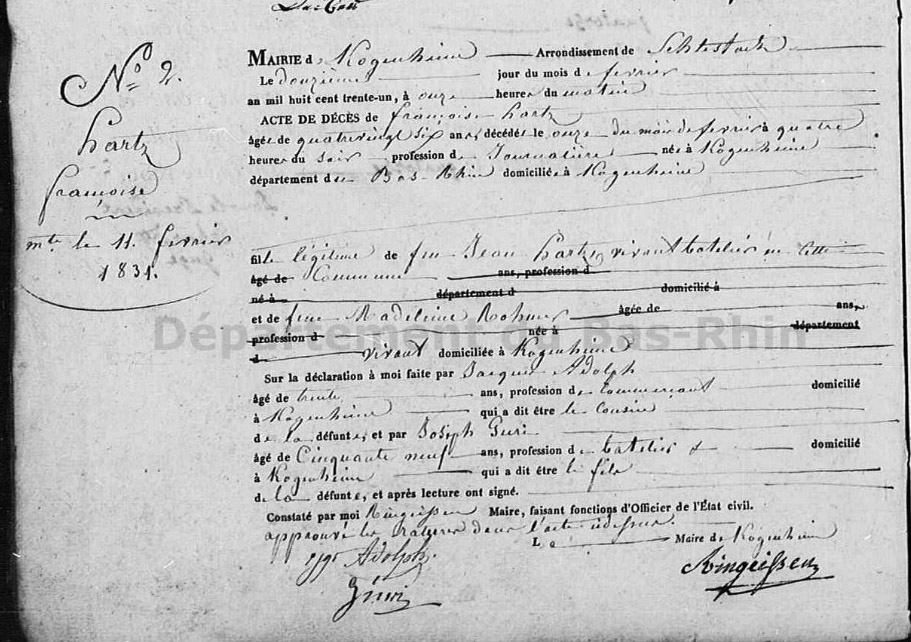 No 2.
hartz
françoise
mte le 11. fevrier
1831.
MAIRIE de Kogenheim Arrondissement de Schlestadt
Le douzieme jour du mois de fevrier
an mil huit cent trente-un, à onze heures du matin
ACTE DE DÉCÈS de françoise hartz
âgée de quatrevingt six ans, décédée le onze du mois de fevrier à quatre
heures du soir profession de Journalière née à Kogenheim
département du Bas Rhin domiciliée à Kogenheim
fille légitime de feu Jean hartz, vivant batelier en cette
âgé de Commune ans, profession d
né à département d domicilié à
et de feue Madeleine Rohmer âgée de ans,
profession d née à département
d vivant domiciliée à Kogenheim
Sur la déclaration à moi faite par Jacques Adolph
âgé de trente ans, profession de Commercant domicilié
à Kogenheim qui a dit être le Cousin
de la défunte, et par Joseph
âgé de Cinquante neuf ans, profession de batelier domicilié
à Kogenheim qui a dit être le fils
de la défunte, et après lecture ont signé.
Constaté par moi Ringeissen Maire, faisant fonctions d'Officier de l'État civil.
approuvé les ratures dans l'acte
Le Maire de Kogenheim
Adolph
Ringeissen
Département du Bas-Rhin